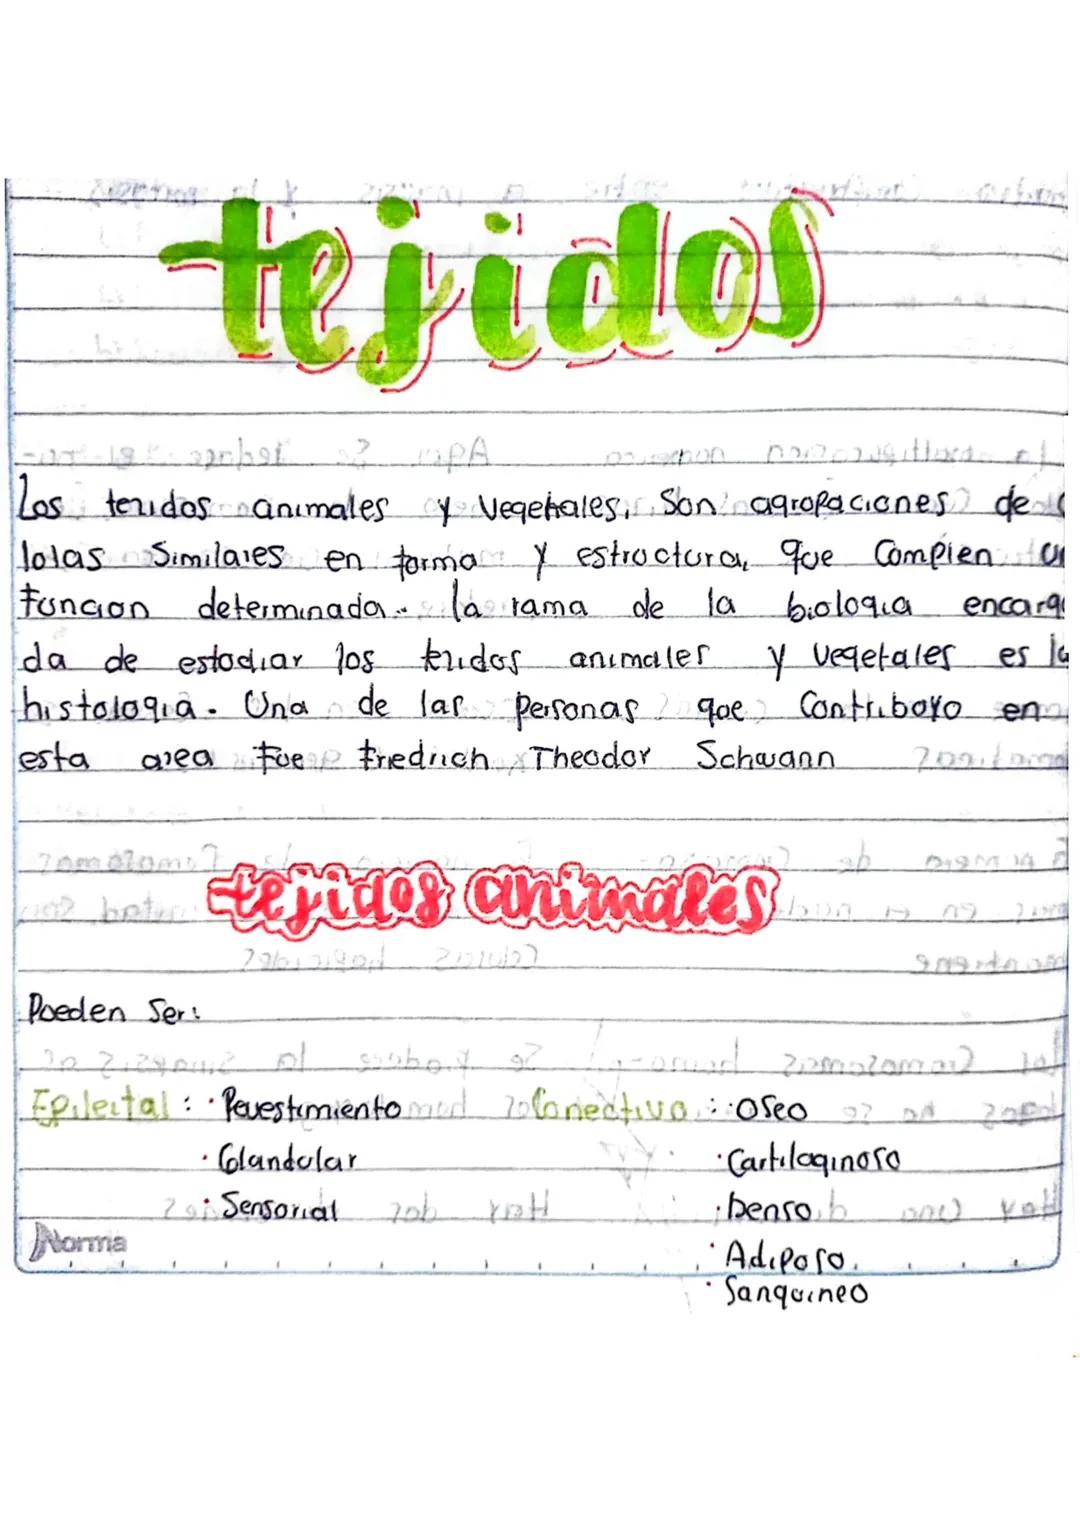 tejidos
Los tejidos animales y vegetales, Son agropaciones de c
lolas Similares en forma y estructura, que Complen un
funcion determinada. la rama de la biologia encarga
da de estodiar los tejidos animales y vegetales es la
histologia. Una de las personas que Contriboyo en
esta area fue friedrich Theodor Schwann
tejidos animales
Poeden Ser:
Epileital: · Revestimiento Conectivo: · Oseo
· Glandolar · Cartilaginoso
· Sensorial · Denso
Norma
· Adiposo
· Sanguineo